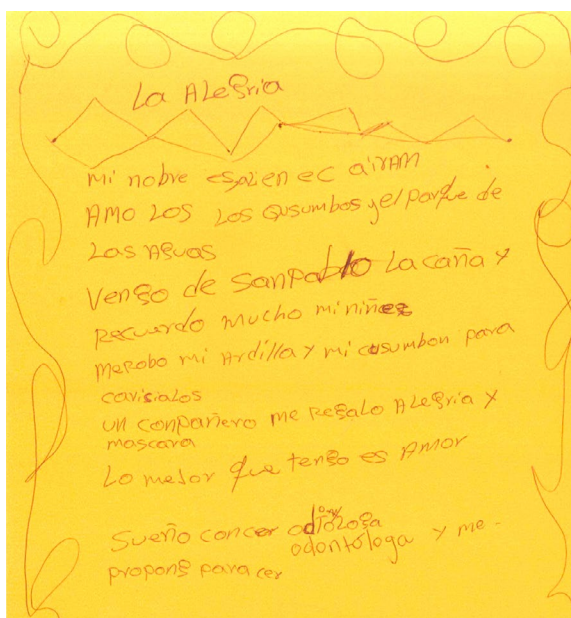 La Alegria
mi nobre es alien ec airam
AMO LOS LOS cusumbos y el parque de
LAS AGUAS
Vengo de San Pablo La caña y
Recuerdo mucho mi niñes
me Robo mi Ardilla y mi cusumbon para
carisialos
un conpañero me Regalo ALegria y
mascara
Lo mejor que tengo es Amor
Sueño con cer
odontóloga y me
propong para cer